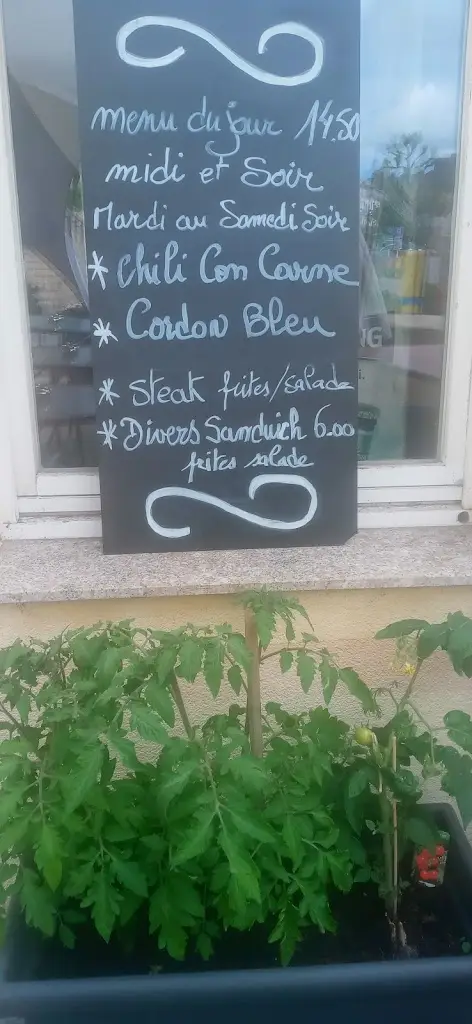 menu du jour 14.50
midi et Soir
Mardi au Samedi Soir
* Chili Con Carne
* Cordon Bleu
* Steak frites/salade
* Divers Sandwich 6.00
frites salade